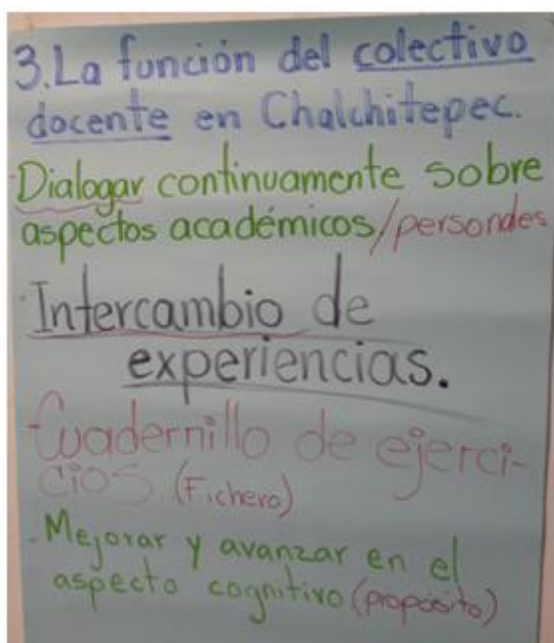 3. La función del colectivo
docente en Chalchitepec.
Dialogar continuamente sobre
aspectos académicos/personales
·Intercambio de
experiencias.
-Cuadernillo de ejerci-
cios (Fichero)
-Mejorar y avanzar en el
aspecto cognitivo (propósito)